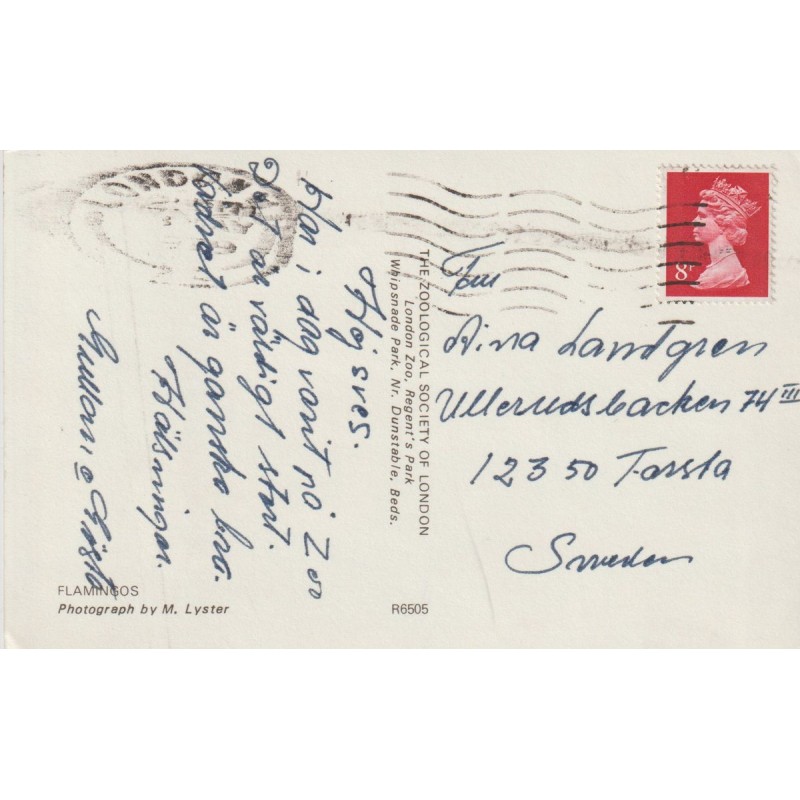 LONDON
Hejsves.
Har i dag varit på Zoo
Det är väldigt stort.
Vädret är ganska bra.
Hälsningar
Gullan o Gösta
THE ZOOLOGICAL SOCIETY OF LONDON
London Zoo, Regent's Park
Whipsnade Park, Nr. Dunstable, Beds.
8P
Fru
Landgren
Ullerudsbacken 74 III
123 50 Farsta
Sweden
FLAMINGOS
Photograph by M. Lyster
R6505